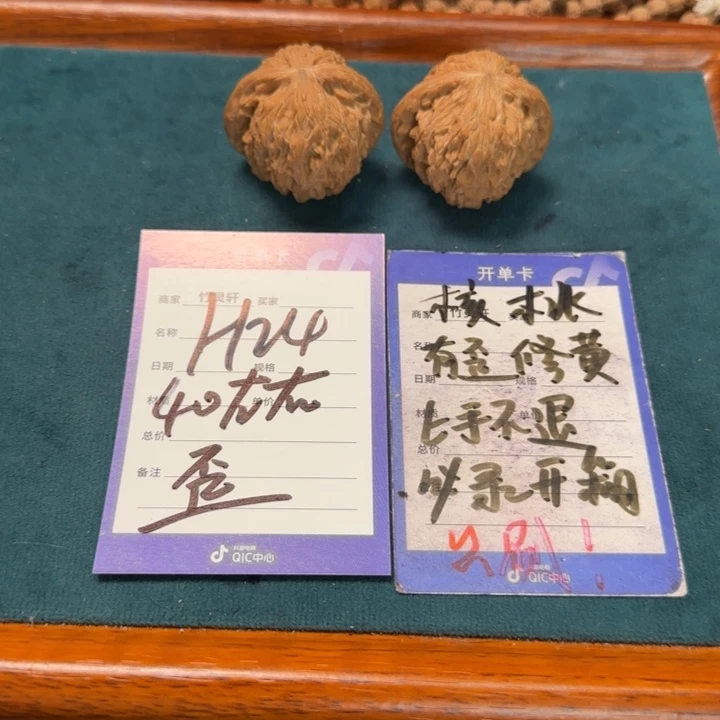 商家 竹灵轩 买家
名称
H24
日期 规格
40左右
材质 单价
总价
备注
歪
抖音电商
QIC中心
开单卡
核木水
商家 竹灵轩
名称
有歪修黄
日期 规格
材质 单价
上手不退
总价
必录开箱
必刷！
QIC中心